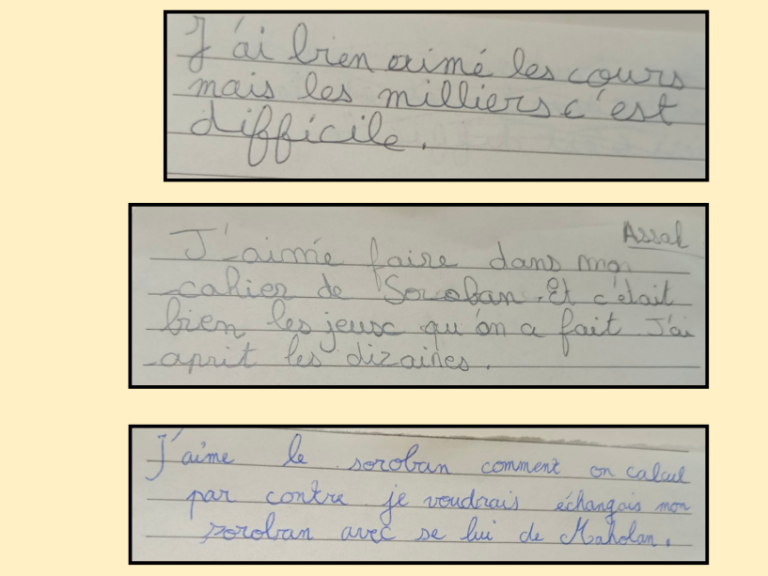 J'ai bien aimé les cours
mais les milliers c'est
difficile.
Assal
J'aimée faire dans mon
cahier de Soroban. Et c'était
bien les jeux qu'on a fait J'ai
aprit les dizaines.
J'aime le soroban comment on calcul
par contre je voudrais échangais mon
soroban avec se lui de Maholan.